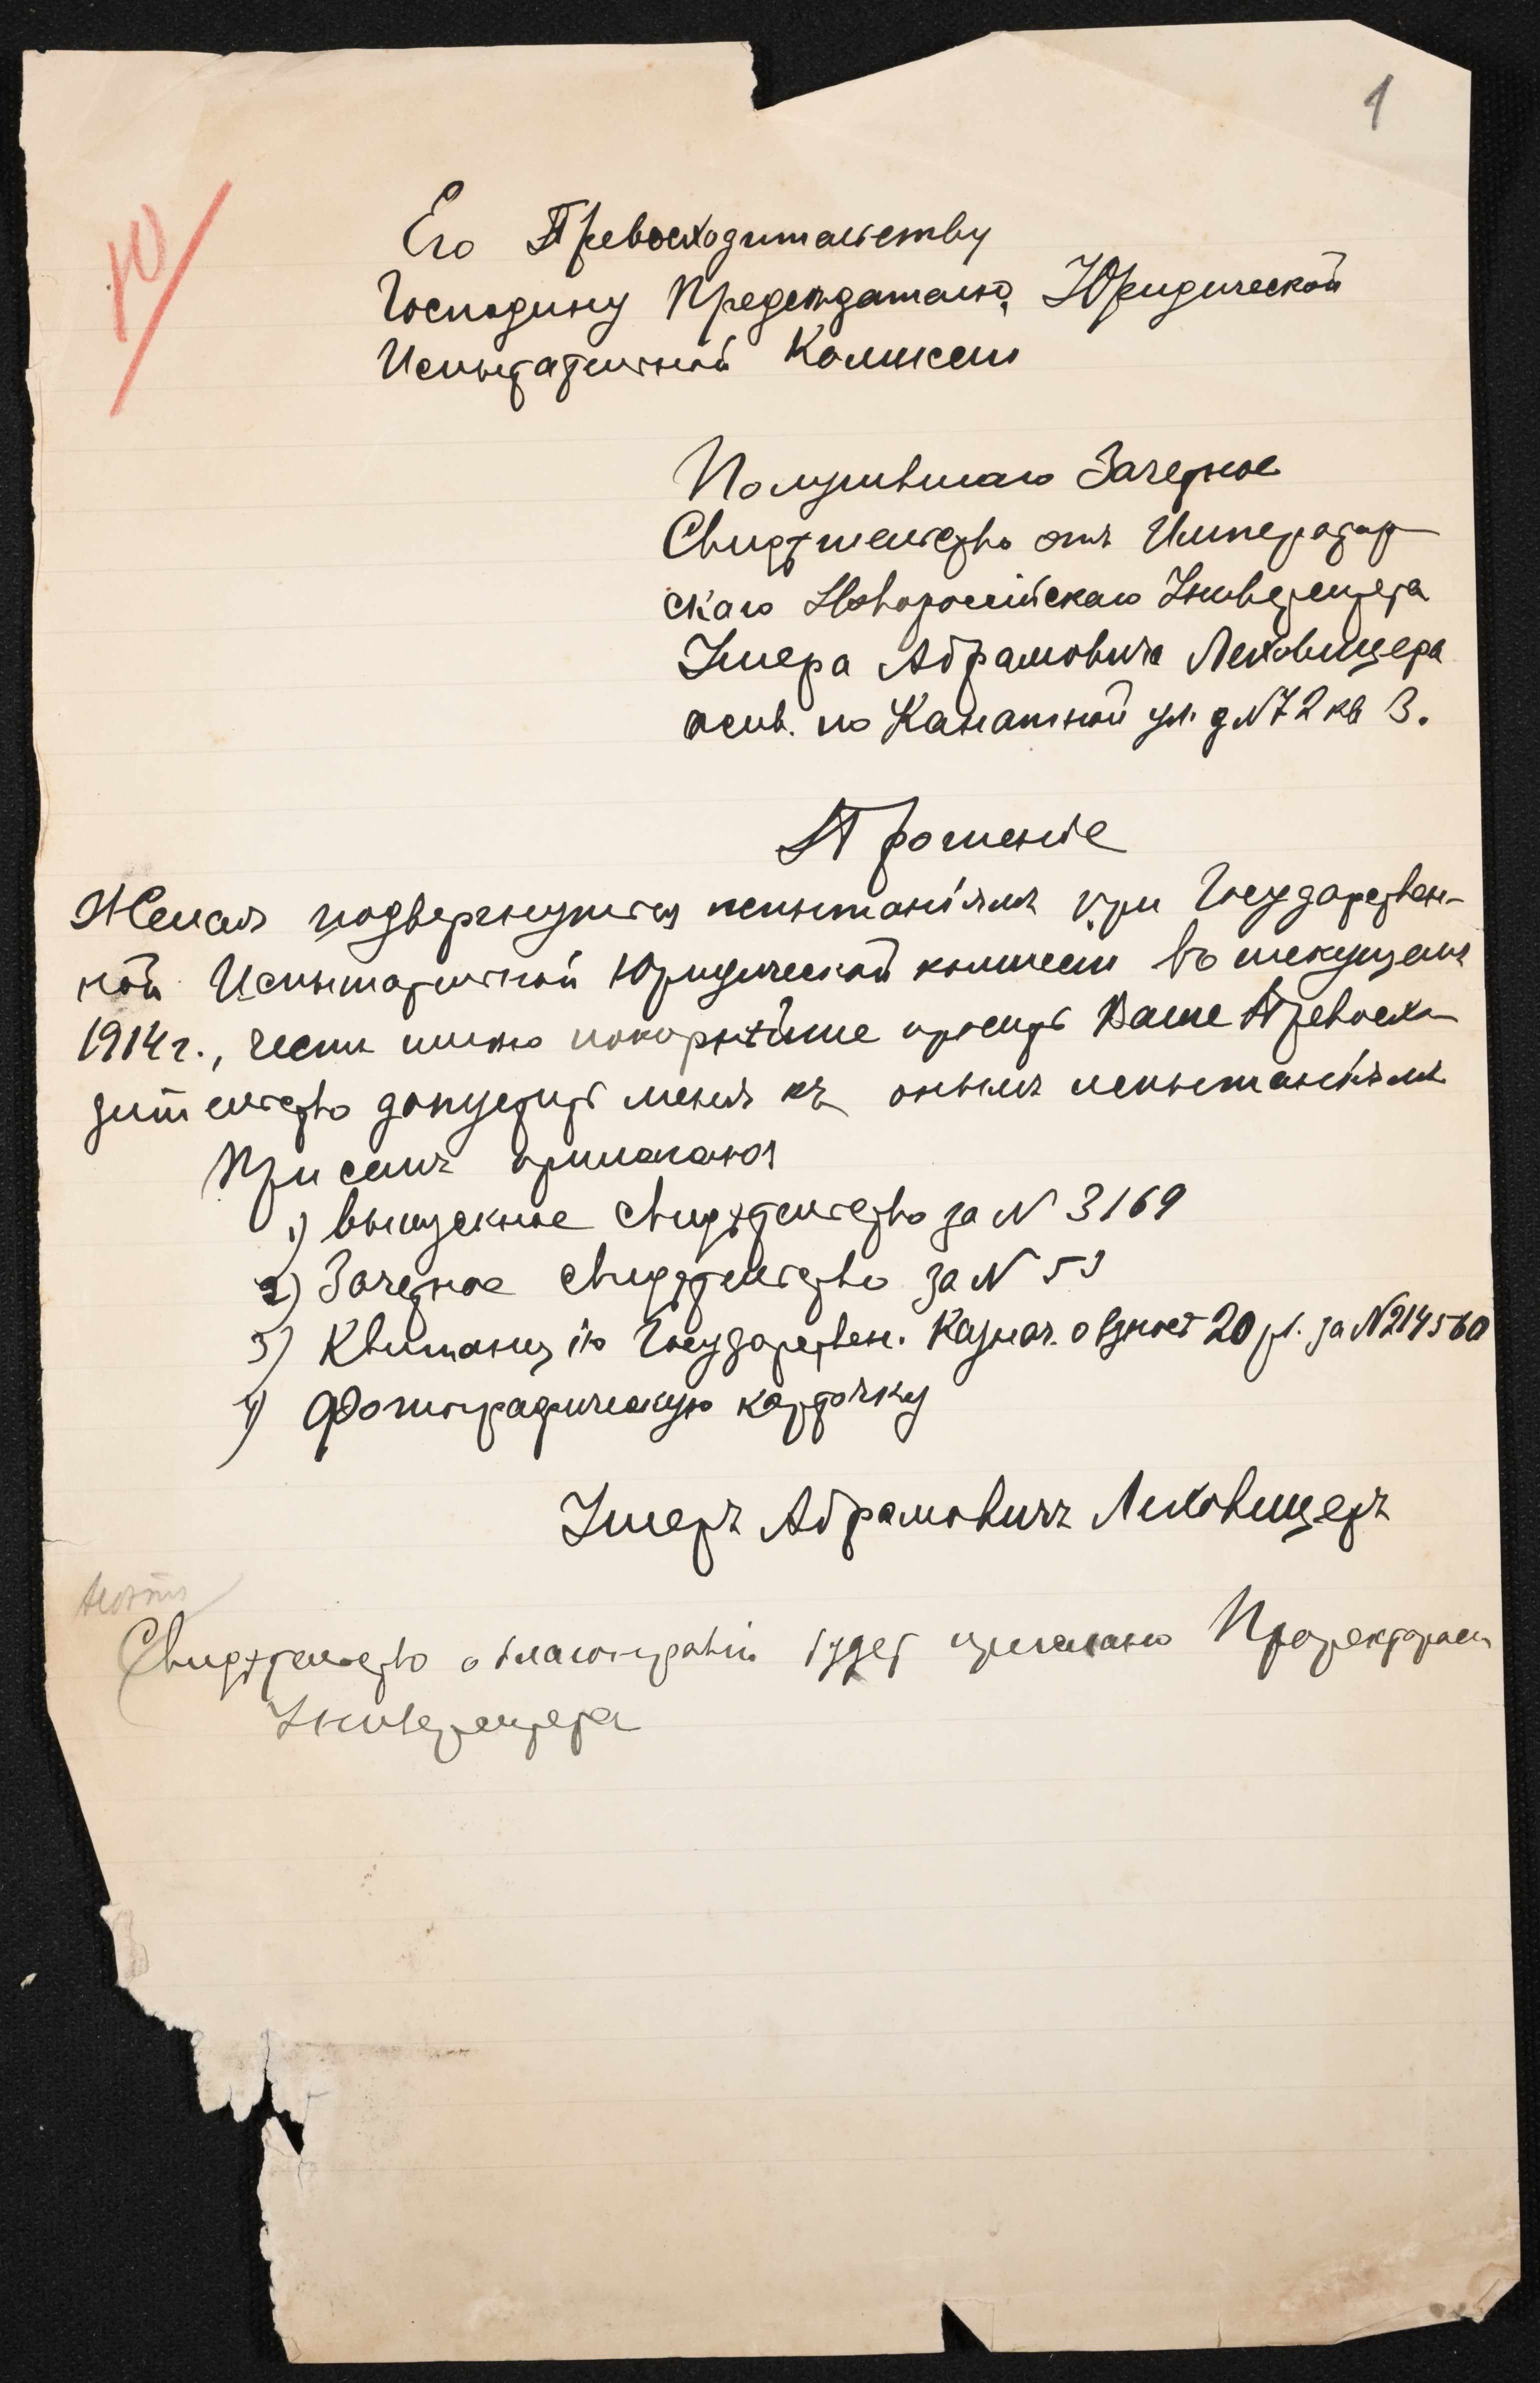 1
10
Его Превосходительству
Господину Председателю Юридической
Испытательной Комиссіи
Получившаго Зачетное
Свидѣтельство отъ Император
скаго Новороссійскаго Университета
Умера Абрамовича Лиховицера
жив. по Канатной ул. д N 72 кв 3.
Прошеніе
Желая подвергнуться испытаніямъ при Государствен-
ной Испытательной Юридической комиссіи въ текущемъ
1914 г., честь имѣю покорнѣйше просить Ваше Превосхо
дительство допустить меня къ онымъ испытаніямъ
При семъ прилагаю
1) Выпускное свидѣтельство за N 3169
2) Зачетное свидѣтельство за N 53
3) Квитанцію Государствен. Казнач. о взносѣ 20 р. за N 214560
4) Фотографическую карточку
Умеръ Абрамовичъ Лиховицеръ
Свидѣтельство о благонравіи будет прислано Проректоромъ
Университета